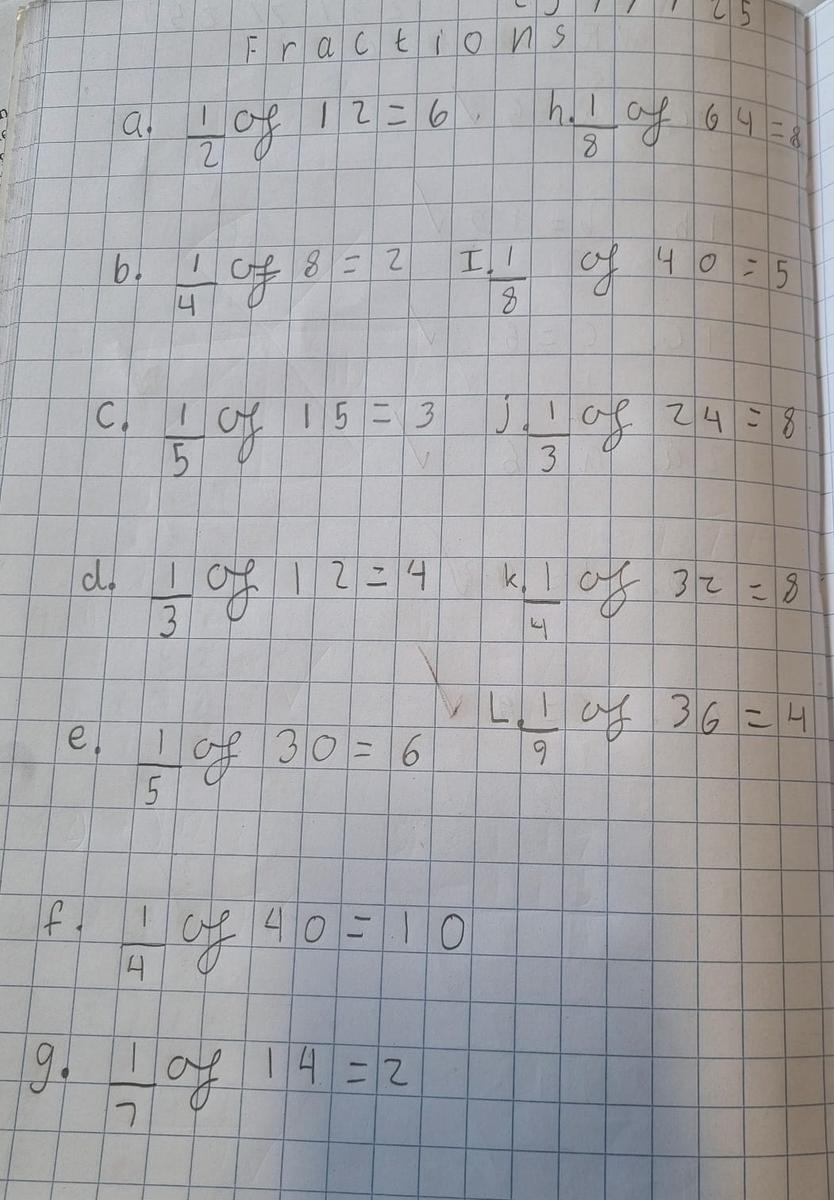 25
Fractions
a. 1/2 of 12 = 6
b. 1/4 of 8 = 2
c. 1/5 of 15 = 3
d. 1/3 of 12 = 4
e. 1/5 of 30 = 6
f. 1/4 of 40 = 10
g. 1/7 of 14 = 2
h. 1/8 of 64 = 8
I. 1/8 of 40 = 5
j. 1/3 of 24 = 8
k. 1/4 of 32 = 8
L. 1/9 of 36 = 4